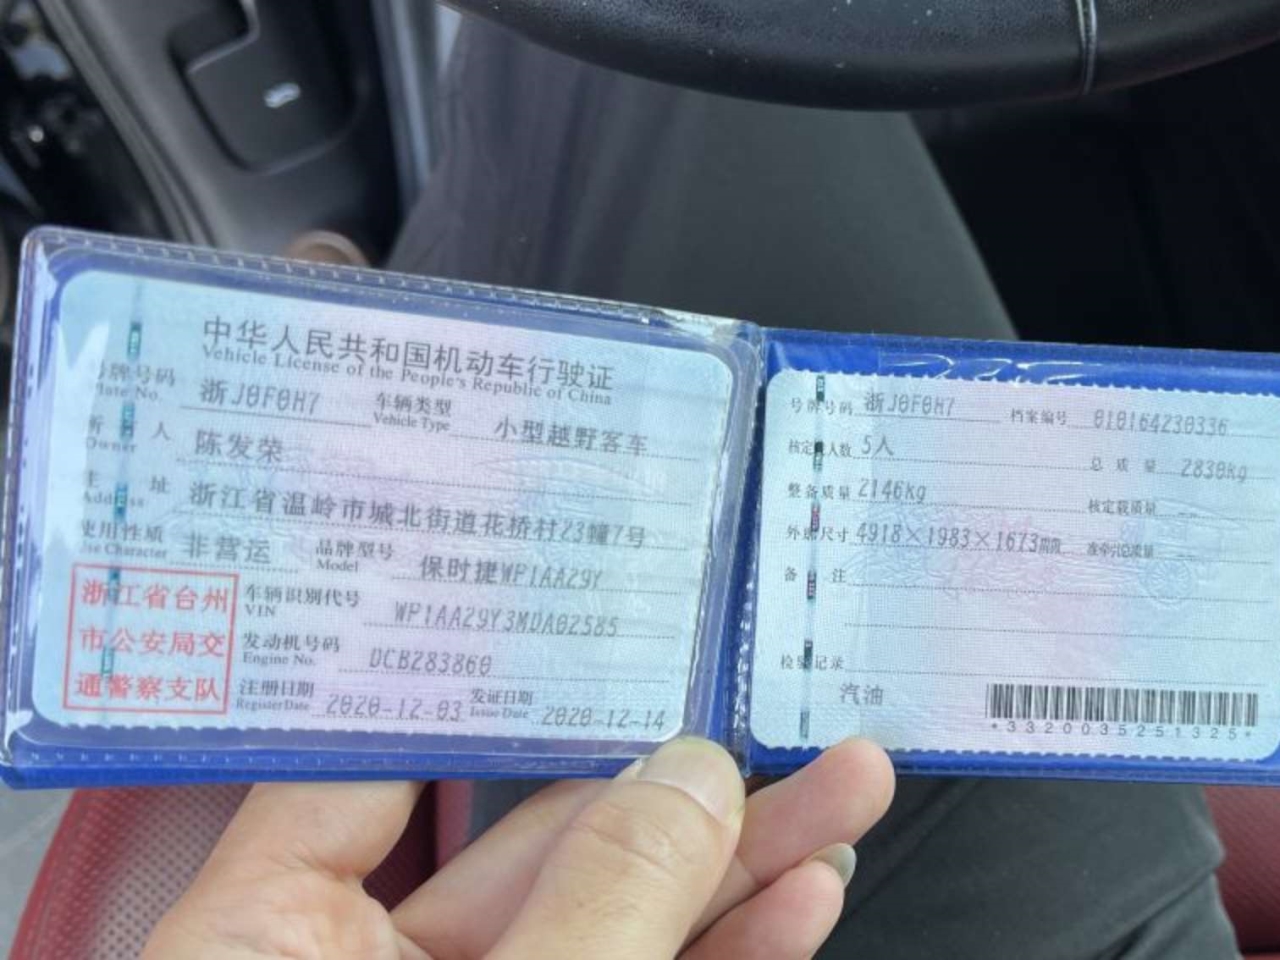 中华人民共和国机动车行驶证
Vehicle License of the People's Republic of China
号牌号码 浙J0F0H7 车辆类型 小型越野客车
Plate No. Vehicle Type
所有人 陈发荣
Owner
住址 浙江省温岭市城北街道花桥村23幢7号
Address
使用性质 非营运 品牌型号 保时捷WP1AA29Y
Use Character Model
浙江省台州
市公安局交
通警察支队
车辆识别代号 WP1AA29Y3MDA02585
VIN
发动机号码 DCB283860
Engine No.
注册日期 2020-12-03 发证日期 2020-12-14
Register Date Issue Date
号牌号码 浙J0F0H7 档案编号 010164230336
核定载人数 5人 总质量 2830kg
整备质量 2146kg 核定载质量 --
外廓尺寸 4918×1983×1673mm 准牵引总质量 --
备注
检验记录
汽油
*3320035251325*